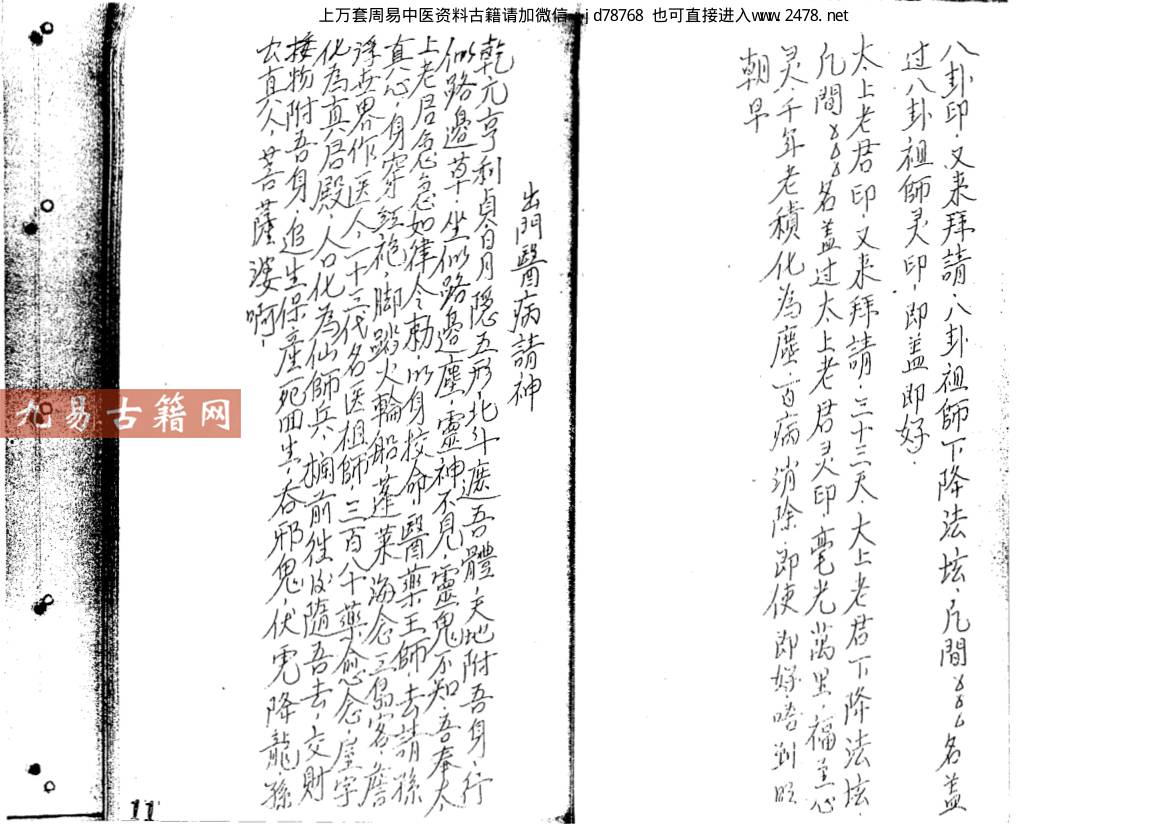 上万套周易中医资料古籍请加微信 jd78768 也可直接进入www.2478.net
八卦印，又来拜請，八卦祖師下降法坛，凡間名盖
过八卦祖師灵印，即盖即好．
太上老君印，又来拜請，三十三天，大上老君下降法坛．
凡間名盖过太上老君灵印毫光萬里，福至心
灵，千年老積化為塵，百病消除，即使即好，唔到明
朝早
出門醫病請神
乾元亨利貞，日月隱五形，北斗遮吾體，天地附吾身，行
似路邊草，坐似路邊塵，靈神不見，靈鬼不知，吾奉太
上老君急急如律令勅，以身挍命，醫藥王師，去請孫
真心，身穿紅袍，脚踏火輪船，蓬萊海念三島客，
浮世界作医人，二十三代名医祖師，三百八十藥念念，屋宇
化為真君殿，人口化為仙師兵，前往後隨吾去，交財
接物附吾身，追生保產死回生，吞邪鬼，伏虎降龍，孫
真人，菩薩婆啊，
九易古籍网
11